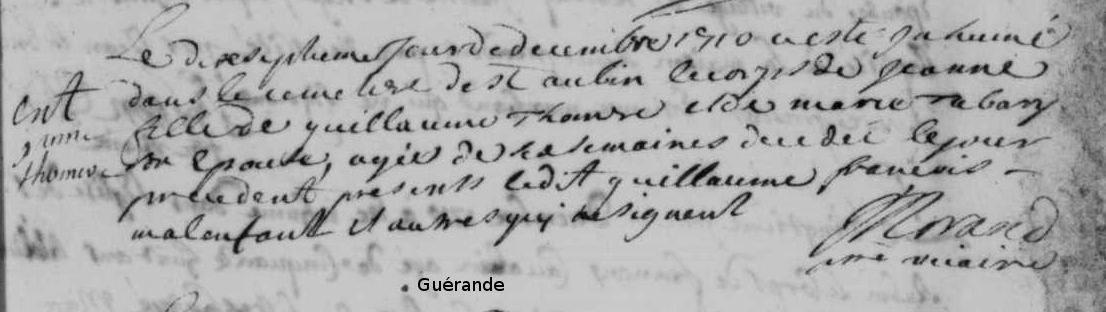 Le dixseptieme jour de decembre 1710 a esté inhumé
dans le cimetiere de St aubin le corps de jeanne
fille de guillaume Thomere et de marie Tabary
son Epouse, agée de semaines decedée le jour
precedent presents ledit guillaume françois
malenfant et autres qui ne signent
ent
jeanne
thomere
Morand
pre vicaire
Guérande